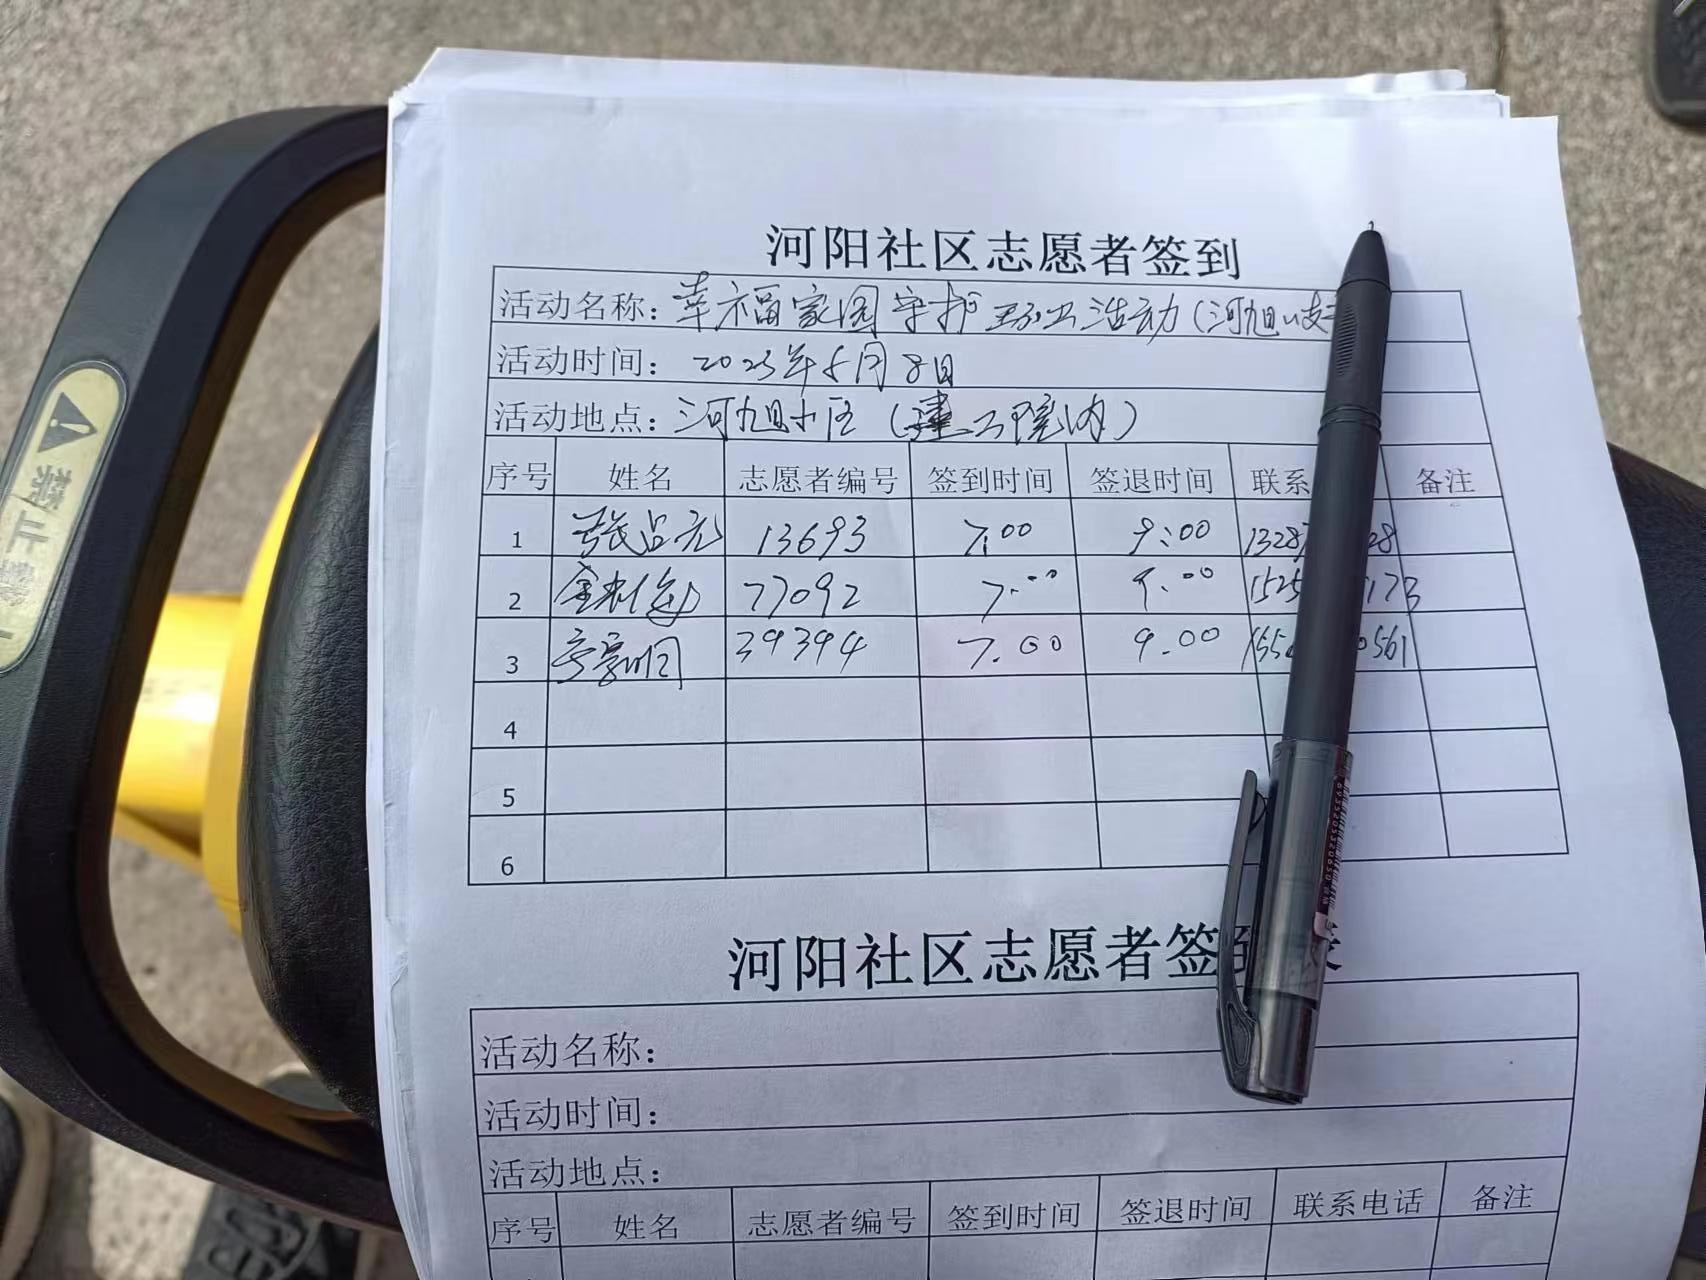 河阳社区志愿者签到
活动名称：幸福家园守护 环卫活动（河旭
活动时间： 2023年5月8日
活动地点：河旭小区（建工院内）
序号 姓名 志愿者编号 签到时间 签退时间 联系 备注
1 张吕元 13693 7:00 9:00 1328 28
2 77092 7:00 9:00 1525 173
3 39394 7.00 9.00 155 0561
4
5
6
河阳社区志愿者签到表
活动名称：
活动时间：
活动地点：
序号 姓名 志愿者编号 签到时间 签退时间 联系电话 备注
禁止
6935205320650